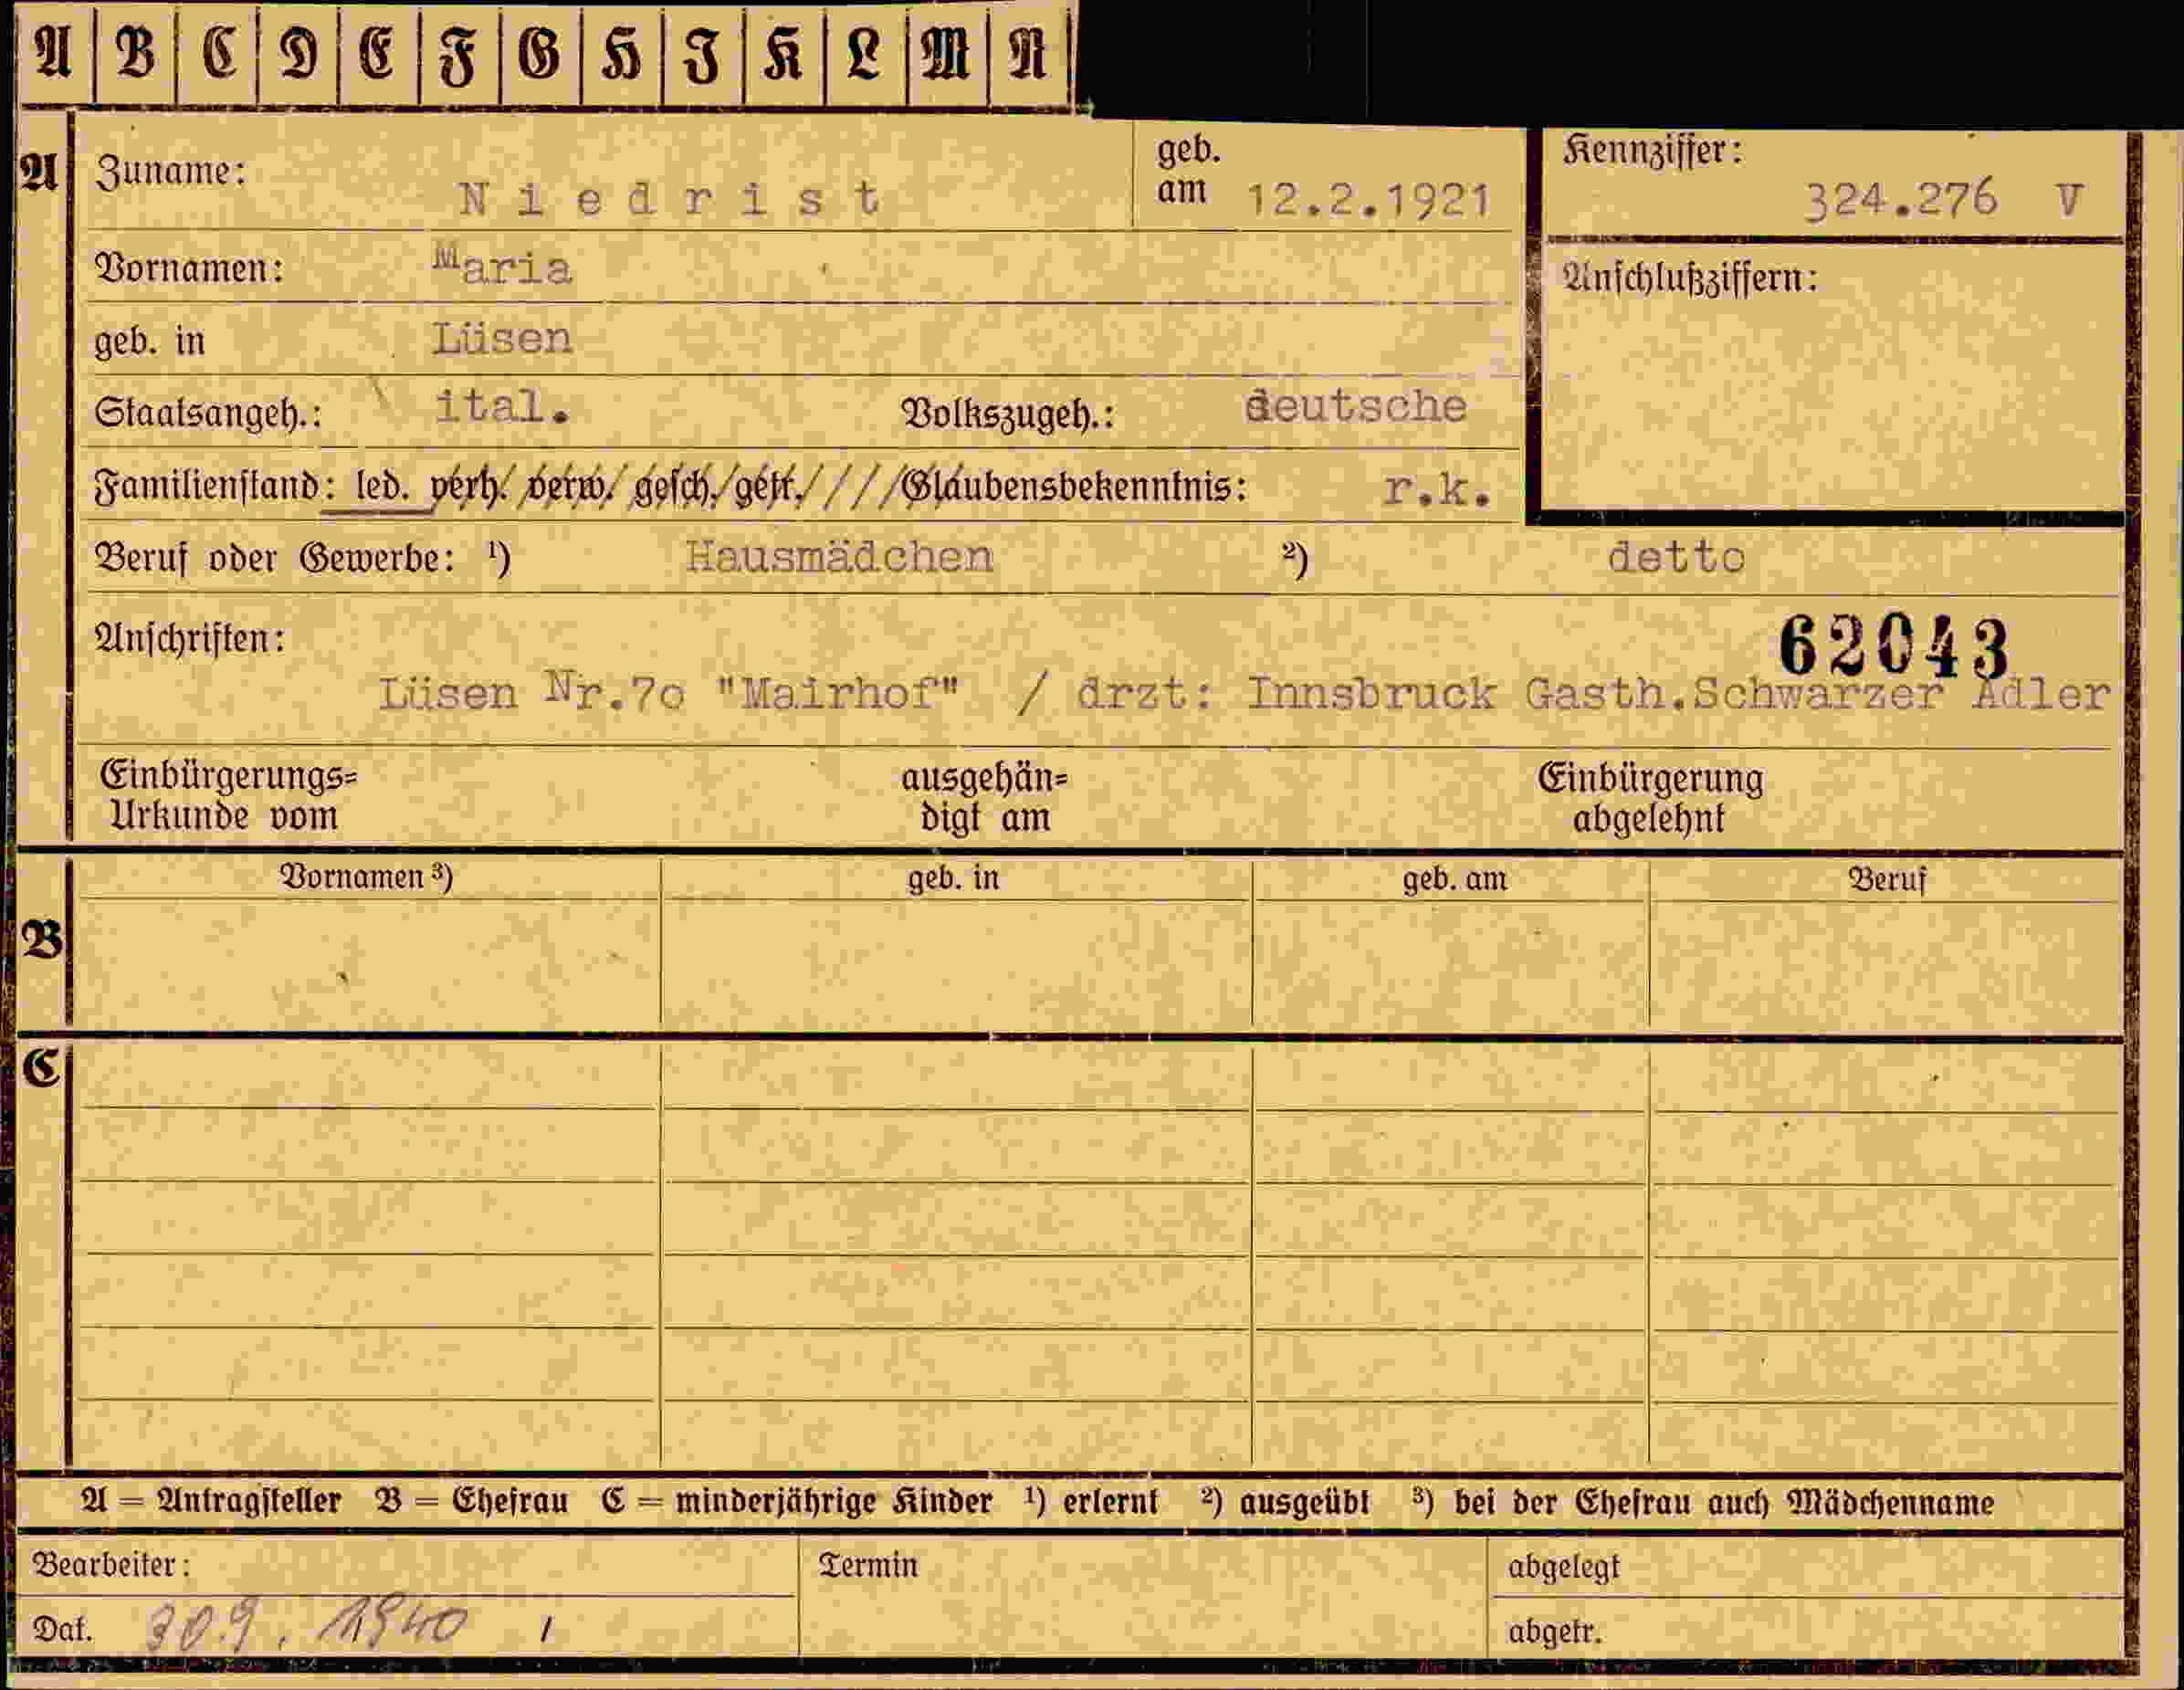 A B C D E F G H J K L M N
A Zuname: Niedrist geb. am 12.2.1921 Kennziffer: 324.276 V
Vornamen: Maria Anschlußziffern:
geb. in Lüsen
Staatsangeh.: ital. Volkszugeh.: deutsche
Familienstand: led. verh. verw. gesch. getr. / / / Glaubensbekenntnis: r.k.
Beruf oder Gewerbe: ¹) Hausmädchen ²) detto
Anschriften: 62043
Lüsen Nr.7o "Mairhof" / drzt: Innsbruck Gasth.Schwarzer Adler
Einbürgerungs= ausgehän= Einbürgerung
Urkunde vom digt am abgelehnt
Vornamen ³) geb. in geb. am Beruf
B
C
A = Antragsteller B = Ehefrau C = minderjährige Kinder ¹) erlernt ²) ausgeübt ³) bei der Ehefrau auch Mädchenname
Bearbeiter: Termin abgelegt
Dat. 30.9. 1940 / abgetr.